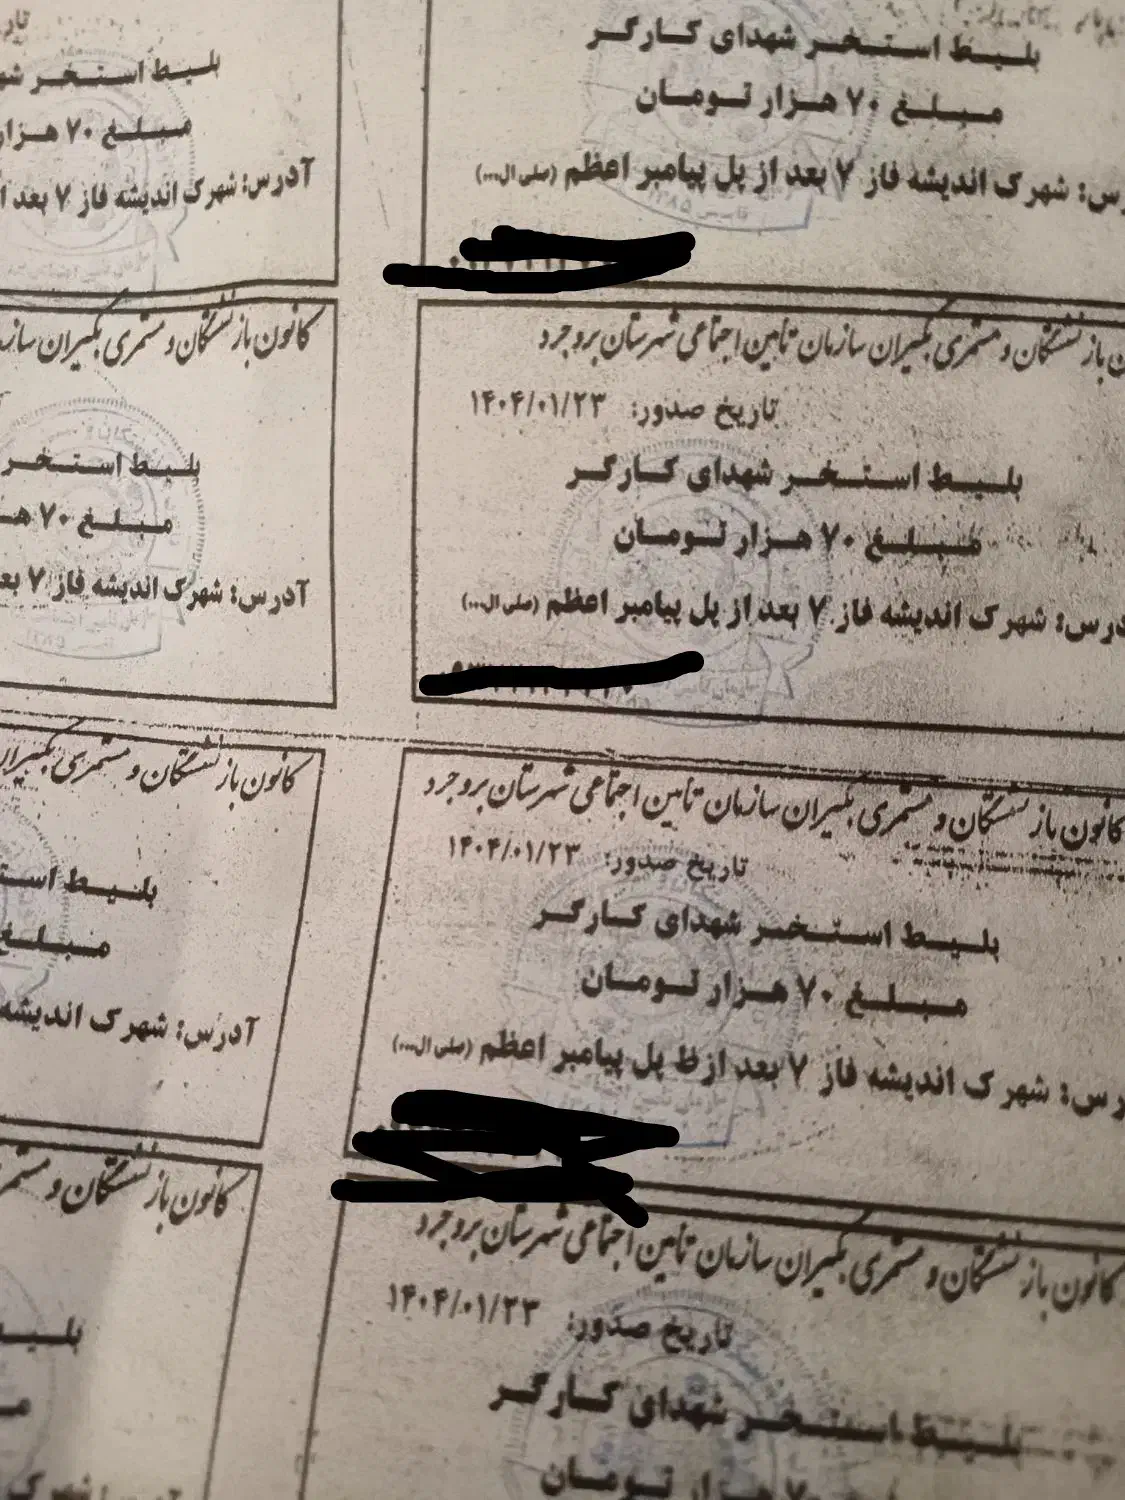 بلیط استخر شهدای کارگر
مبلغ ۷۰ هزار تومان
درس: شهرک اندیشه فاز ۷ بعد از پل پیامبر اعظم (صلی ال...)
تاسیس ۱۳۸۵
تار
بلیط استخر شه
مبلغ ۷۰ هزار
آدرس: شهرک اندیشه فاز ۷ بعد ا
ن بازنشستگان و مستمری بگیران سازمان تأمین اجتماعی شهرستان بروجرد
تاریخ صدور: ۱۴۰۴/۰۱/۲۳
بلیط استخر شهدای کارگر
مبلغ ۷۰ هزار تومان
درس: شهرک اندیشه فاز ۷ بعد از پل پیامبر اعظم (صلی ال...)
کانون بازنشستگان و مستمری بگیران ساز
بلیط استخر
مبلغ ۷۰ هـ
آدرس: شهرک اندیشه فاز ۷ بع
کانون بازنشستگان و مستمری بگیران سازمان تأمین اجتماعی شهرستان بروجرد
تاریخ صدور: ۱۴۰۴/۰۱/۲۳
بلیط استخر شهدای کارگر
مبلغ ۷۰ هزار تومان
رس: شهرک اندیشه فاز ۷ بعد ازظ پل پیامبر اعظم (صلی ال...)
کانون بازنشستگان و مستمری بگیران
بلیط است
مبلغ
آدرس: شهرک اندیشه
کانون بازنشستگان و مستمری بگیران سازمان تأمین اجتماعی شهرستان بروجرد
تاریخ صدور: ۱۴۰۴/۰۱/۲۳
بلیط استخر شهدای کارگر
۷۰ هزار تومان
کانون بازنشستگان و مستمر
بلیـ